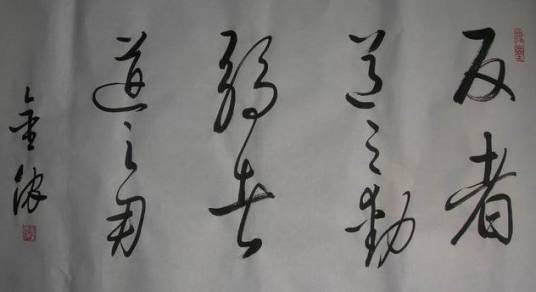 反者
道之動
弱者
道之用
金浓